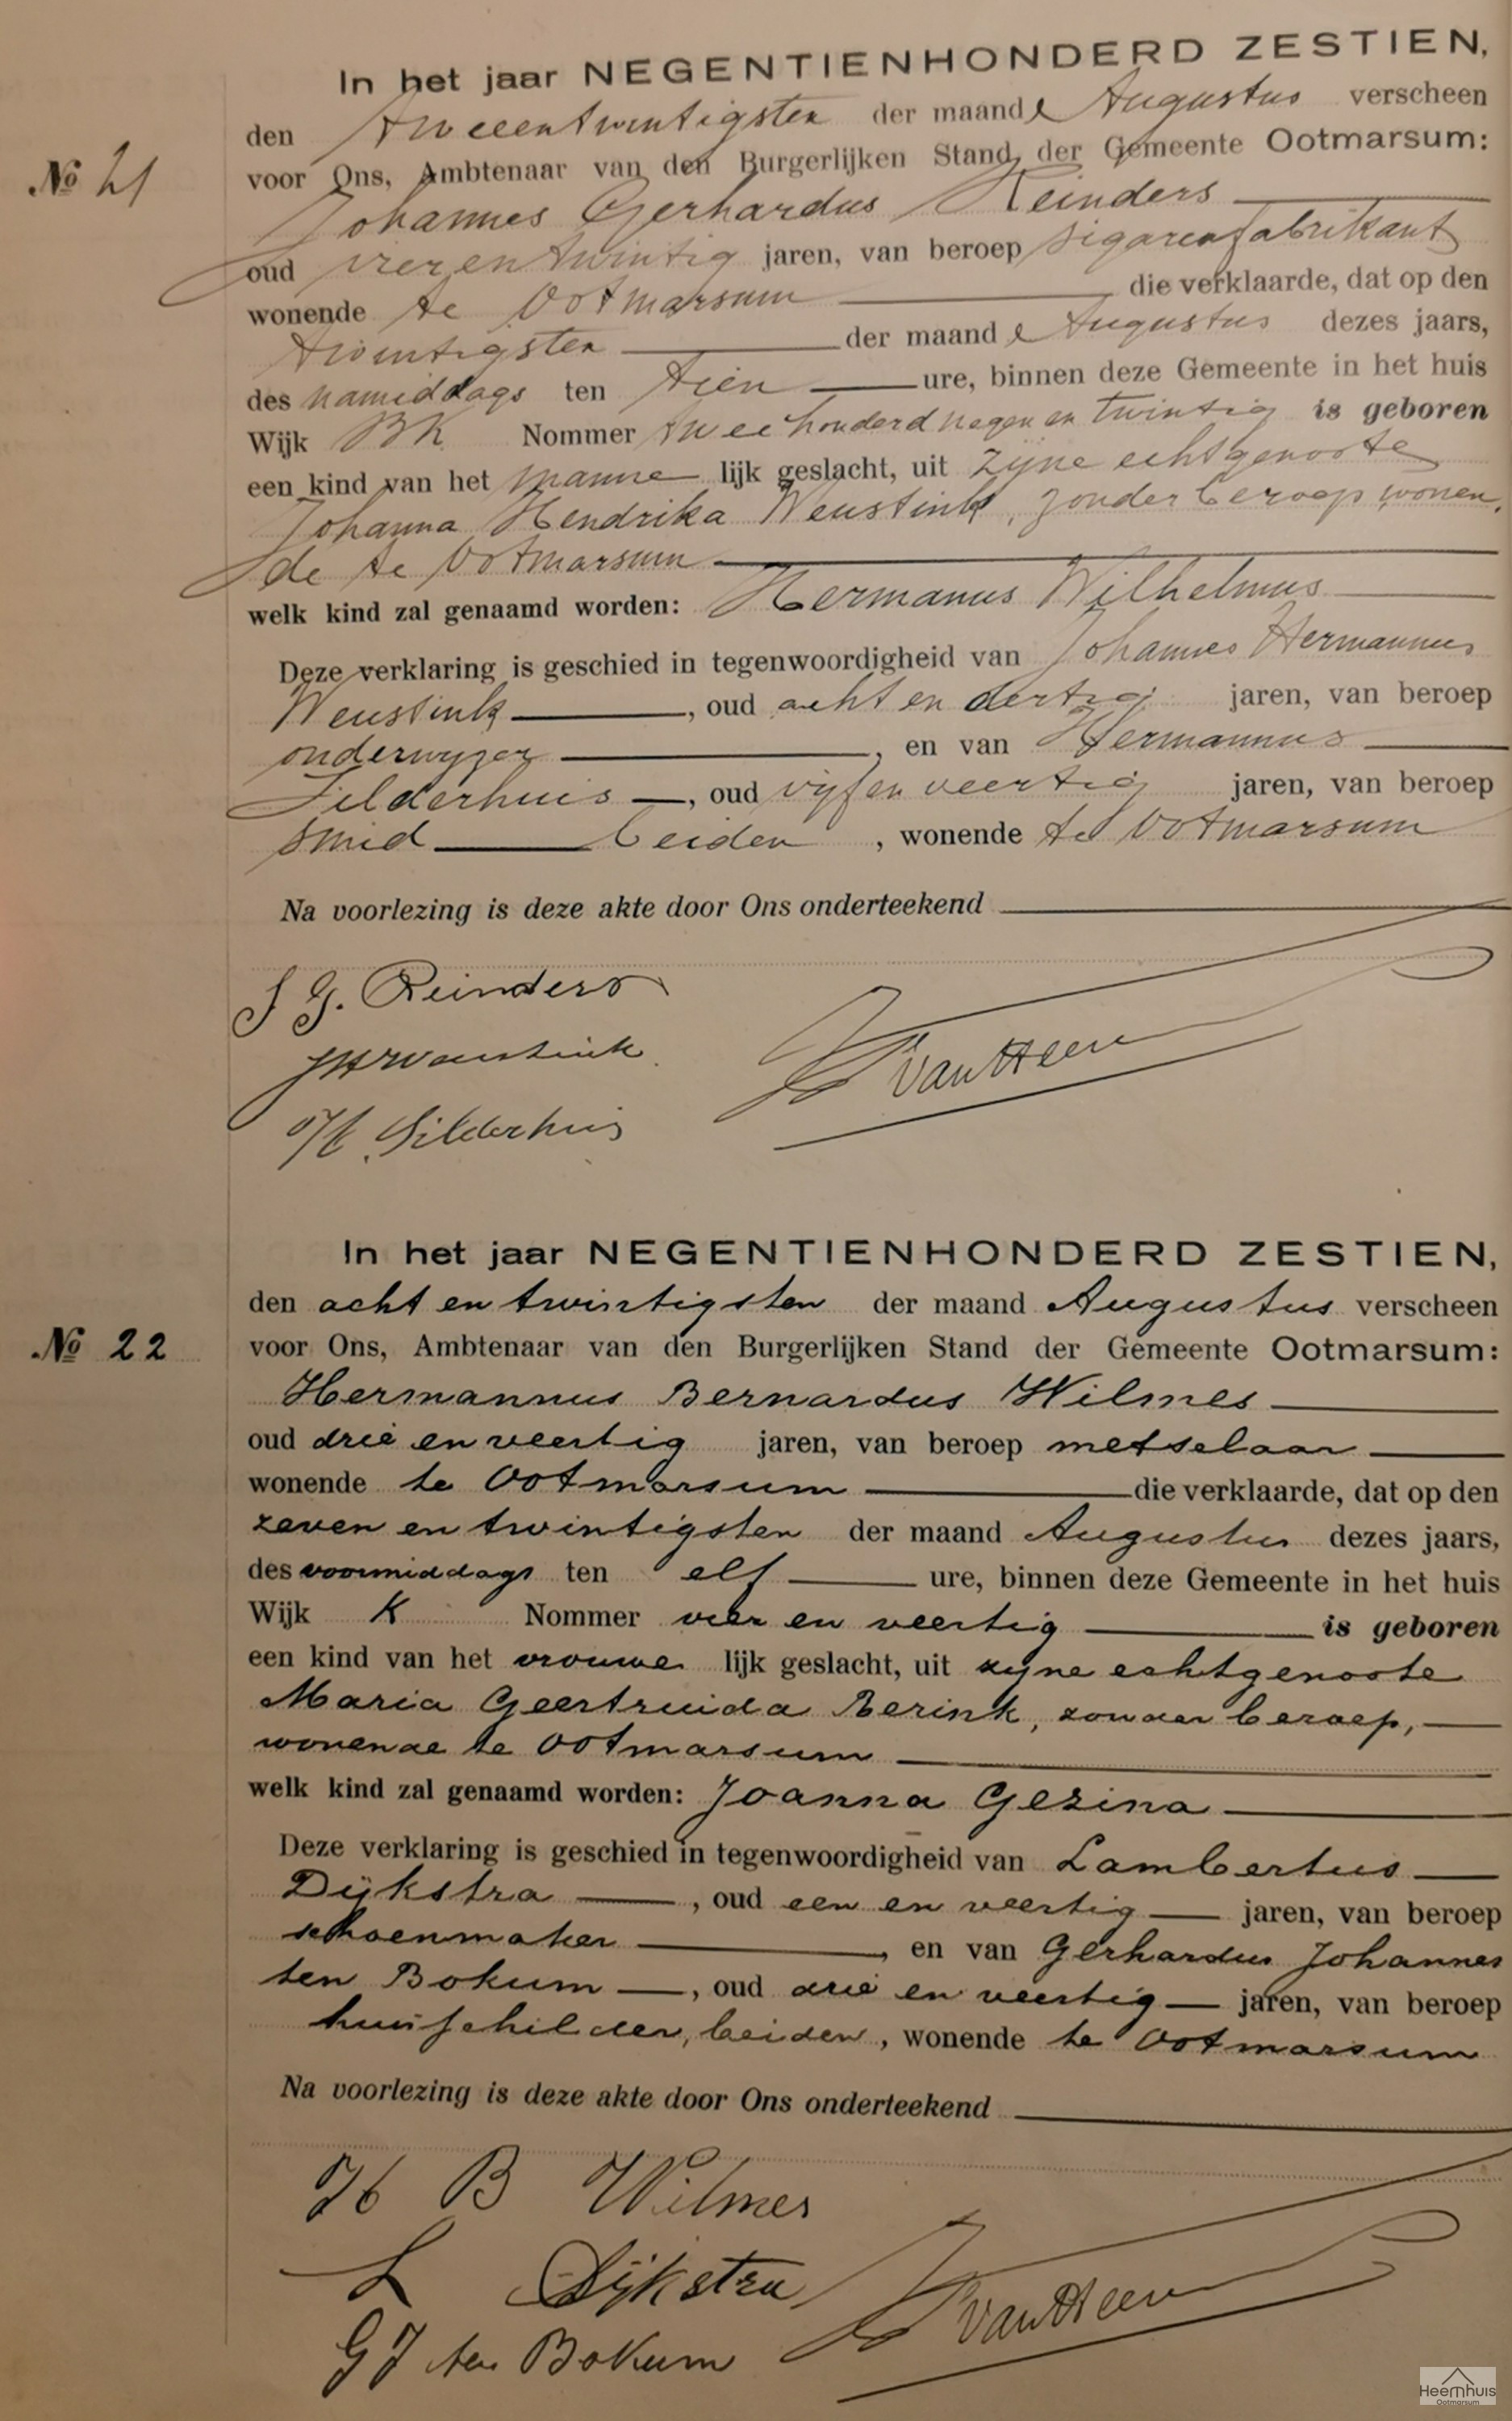 In het jaar NEGENTIENHONDERD ZESTIEN,
den tweeentwintigsten der maand Augustus verscheen
voor Ons, Ambtenaar van den Burgerlijken Stand der Gemeente Ootmarsum:
Nº 21
Johannes Gerhardus Reinders
oud vierentwintig jaren, van beroep sigarenfabrikant
wonende te Ootmarsum die verklaarde, dat op den
twintigsten der maand Augustus dezes jaars,
des namiddags ten tien ure, binnen deze Gemeente in het huis
Wijk BK Nommer tweehonderd negen en twintig is geboren
een kind van het manne lijk geslacht, uit zijne echtgenoote
Johanna Hendrika Weustink, zonder beroep, wonen,
de te Ootmarsum
welk kind zal genaamd worden: Hermanus Wilhelmus
Deze verklaring is geschied in tegenwoordigheid van Johannes Hermannus
Weustink, oud acht en dertig jaren, van beroep
onderwijzer, en van Hermannus
Silderhuis, oud vijf en veertig jaren, van beroep
smid beiden, wonende te Ootmarsum
Na voorlezing is deze akte door Ons onderteekend
J G. Reinders
JHWeustink.
H. Silderhuis
VanHeen
In het jaar NEGENTIENHONDERD ZESTIEN,
den acht en twintigsten der maand Augustus verscheen
Nº 22
voor Ons, Ambtenaar van den Burgerlijken Stand der Gemeente Ootmarsum:
Hermannus Bernardus Wilmes
oud drie en veertig jaren, van beroep metselaar
wonende te Ootmarsum die verklaarde, dat op den
zeven en twintigsten der maand Augustus dezes jaars,
des voormiddags ten elf ure, binnen deze Gemeente in het huis
Wijk K Nommer vier en veertig is geboren
een kind van het vrouwe lijk geslacht, uit zijne echtgenoote
Maria Geertruida Berink, zonder beroep,
wonende te Ootmarsum
welk kind zal genaamd worden: Joanna Gezina
Deze verklaring is geschied in tegenwoordigheid van Lambertus
Dijkstra, oud een en veertig jaren, van beroep
schoenmaker, en van Gerhardus Johannes
ten Bokum, oud drie en veertig jaren, van beroep
huisschilder, beiden, wonende te Ootmarsum
Na voorlezing is deze akte door Ons onderteekend
H B Wilmes
L Dijkstra
VanHeen
G J ten Bokum
Heemhuis
Ootmarsum